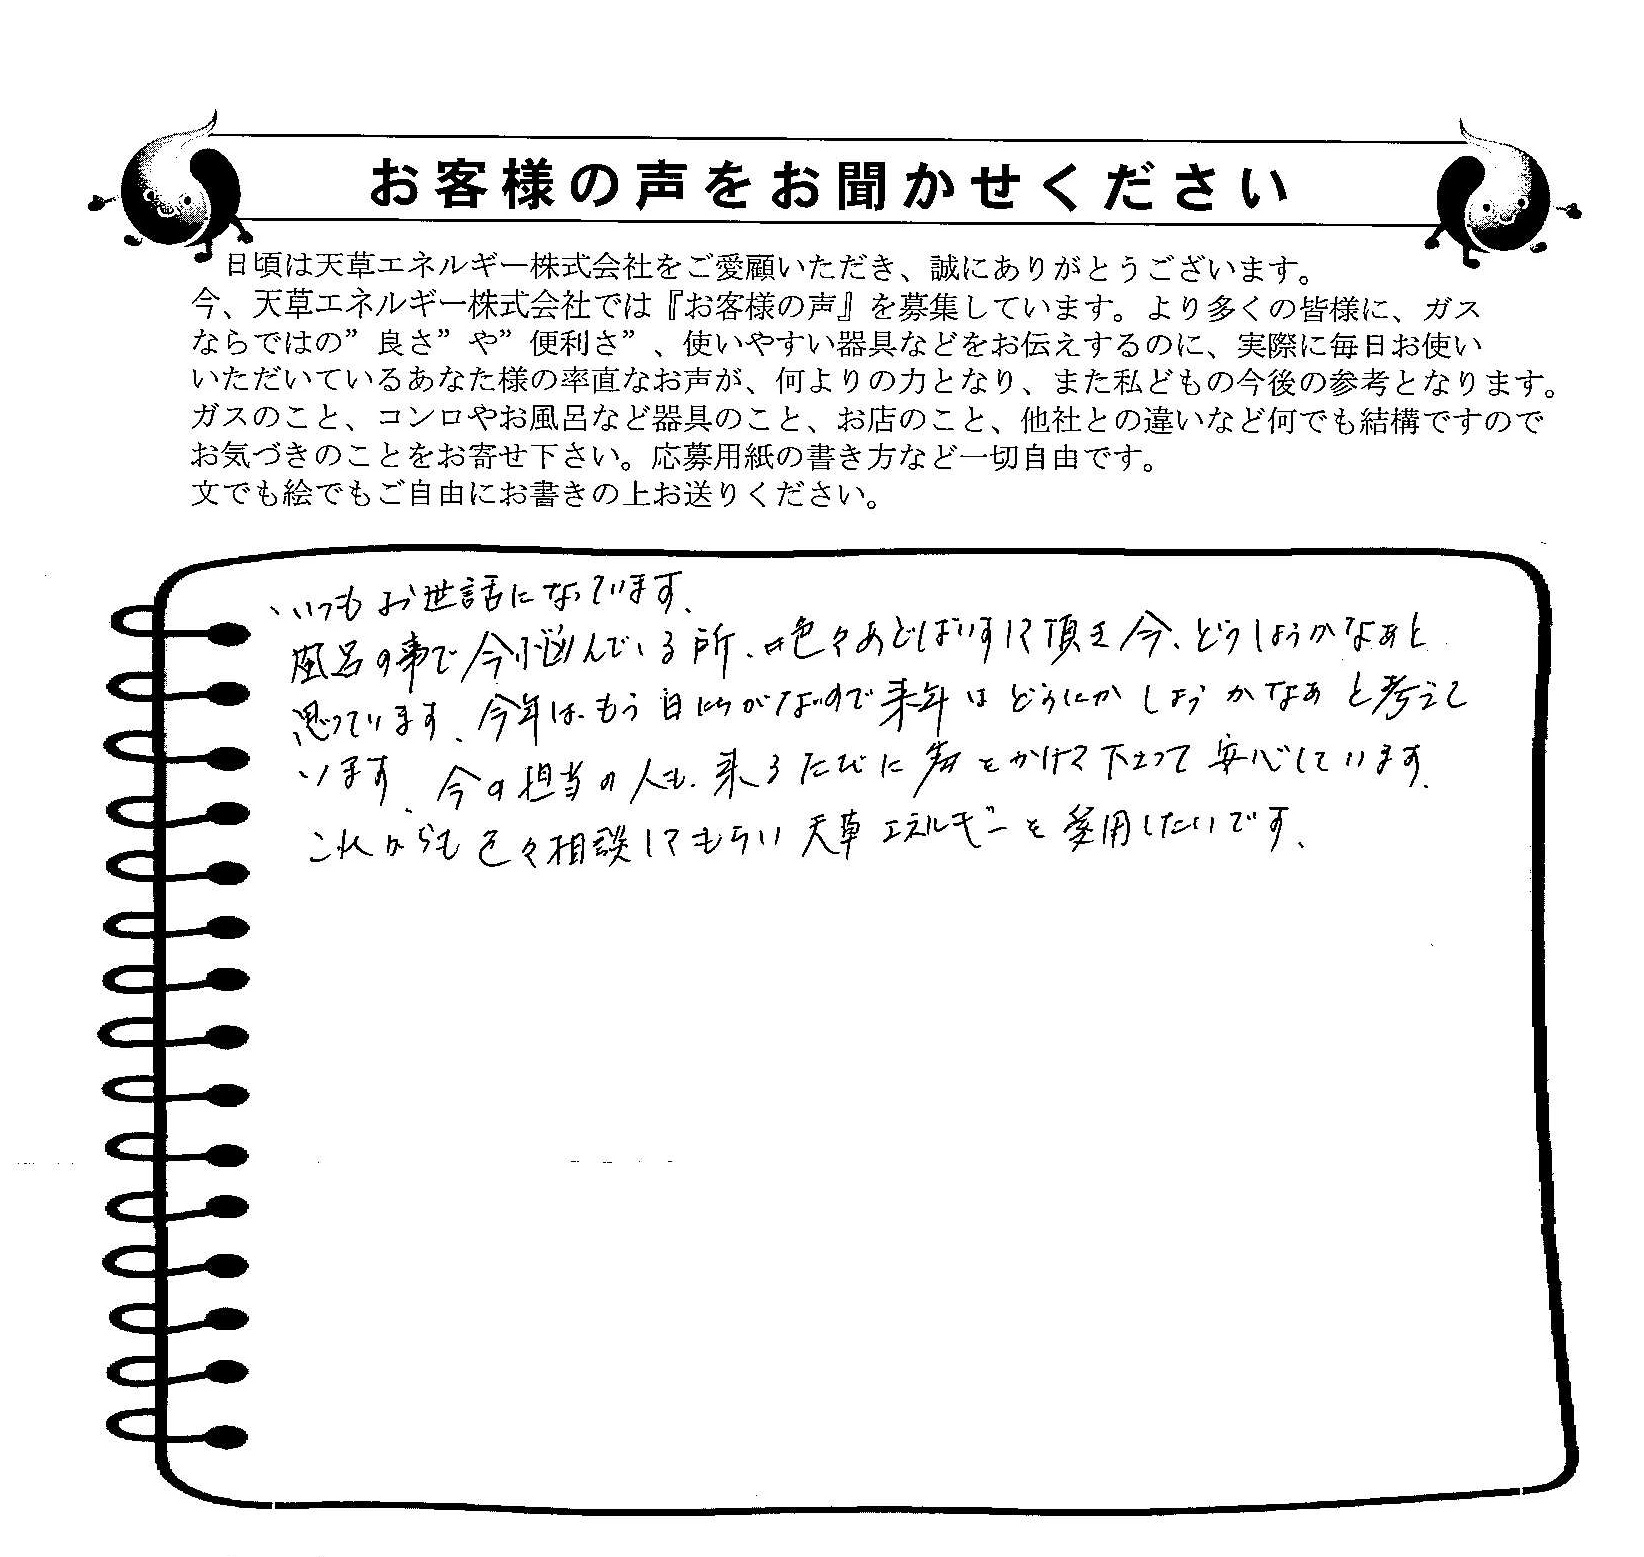 お客様の声をお聞かせください
日頃は天草エネルギー株式会社をご愛顧いただき、誠にありがとうございます。
今、天草エネルギー株式会社では『お客様の声』を募集しています。より多くの皆様に、ガス
ならではの”良さ”や”便利さ”、使いやすい器具などをお伝えするのに、実際に毎日お使い
いただいているあなた様の率直なお声が、何よりの力となり、また私どもの今後の参考となります。
ガスのこと、コンロやお風呂など器具のこと、お店のこと、他社との違いなど何でも結構ですので
お気づきのことをお寄せ下さい。応募用紙の書き方など一切自由です。
文でも絵でもご自由にお書きの上お送りください。
いつもお世話になっています、
風呂の事で今悩んでいる所、色々あどばいすして頂き今、どうしようかなぁと
思っています、今年は、もう日にちがないので来年はどうにかしようかなあと考えて
います、今の担当の人も、来るたびに声をかけて下さって安心しています、
これからも色々相談してもらい天草エネルギーを愛用したいです、